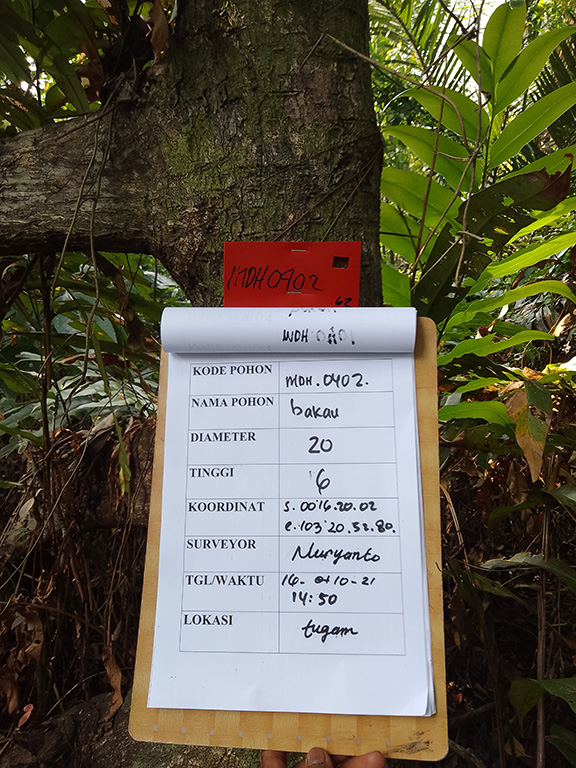 MDH0402
62
MDH 0401
KODE POHON MDH.0402.
NAMA POHON bakau
DIAMETER 20
TINGGI 6
KOORDINAT S.00'16.20.02
E.103'20.52.80.
SURVEYOR Nuryanto
TGL/WAKTU 16- 10-21
14:50
LOKASI tugam